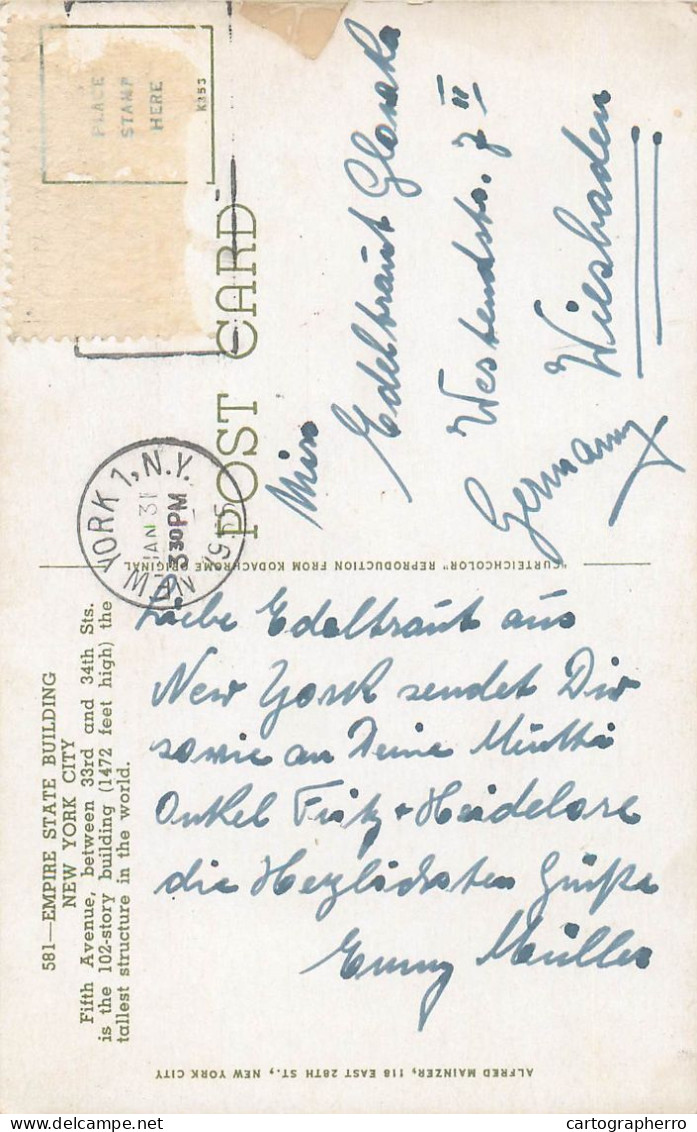 PLACE
STAMP
HERE
K353
POST CARD
NEW YORK 1, N.Y.
JAN 31
330PM
1955
Miss
Edeltraut
Westendstr. 7 II
Wiesbaden
Germany
"CURTEICHCOLOR" REPRODUCTION FROM KODACHROME ORIGINAL
581—EMPIRE STATE BUILDING
NEW YORK CITY
Fifth Avenue, between 33rd and 34th Sts.
is the 102-story building (1472 feet high) the
tallest structure in the world.
Liebe Edeltraut aus
New York sendet Dir
sowie an Deine Mutti
Onkel Fritz + Heidelore
die Herzlichsten Grüße
Emmy Müller
ALFRED MAINZER, 118 EAST 28TH ST., NEW YORK CITY
cartographerro